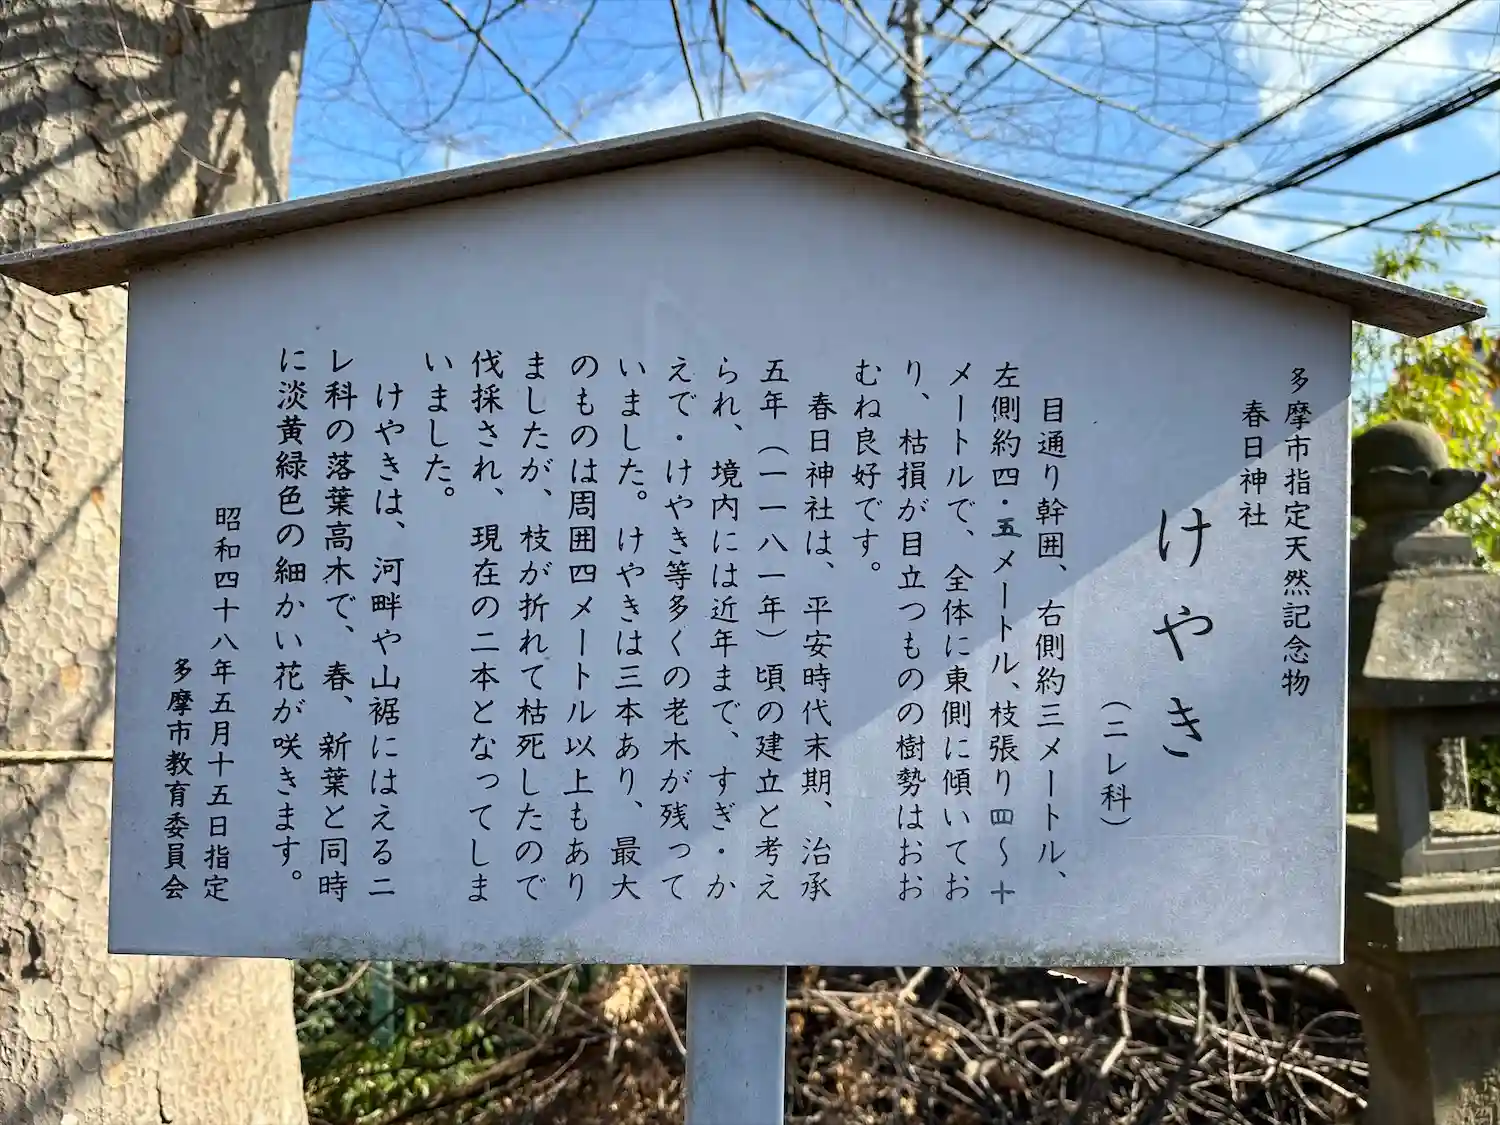 多摩市指定天然記念物
春日神社
けやき
（ニレ科）
目通り幹囲、右側約三メートル、
左側約四・五メートル、枝張り四〜十
メートルで、全体に東側に傾いてお
り、枯損が目立つものの樹勢はおお
むね良好です。
春日神社は、平安時代末期、治承
五年（一一八一年）頃の建立と考え
られ、境内には近年まで、すぎ・か
えで・けやき等多くの老木が残って
いました。けやきは三本あり、最大
のものは周囲四メートル以上もあり
ましたが、枝が折れて枯死したので
伐採され、現在の二本となってしま
いました。
けやきは、河畔や山裾にはえるニ
レ科の落葉高木で、春、新葉と同時
に淡黄緑色の細かい花が咲きます。
昭和四十八年五月十五日指定
多摩市教育委員会